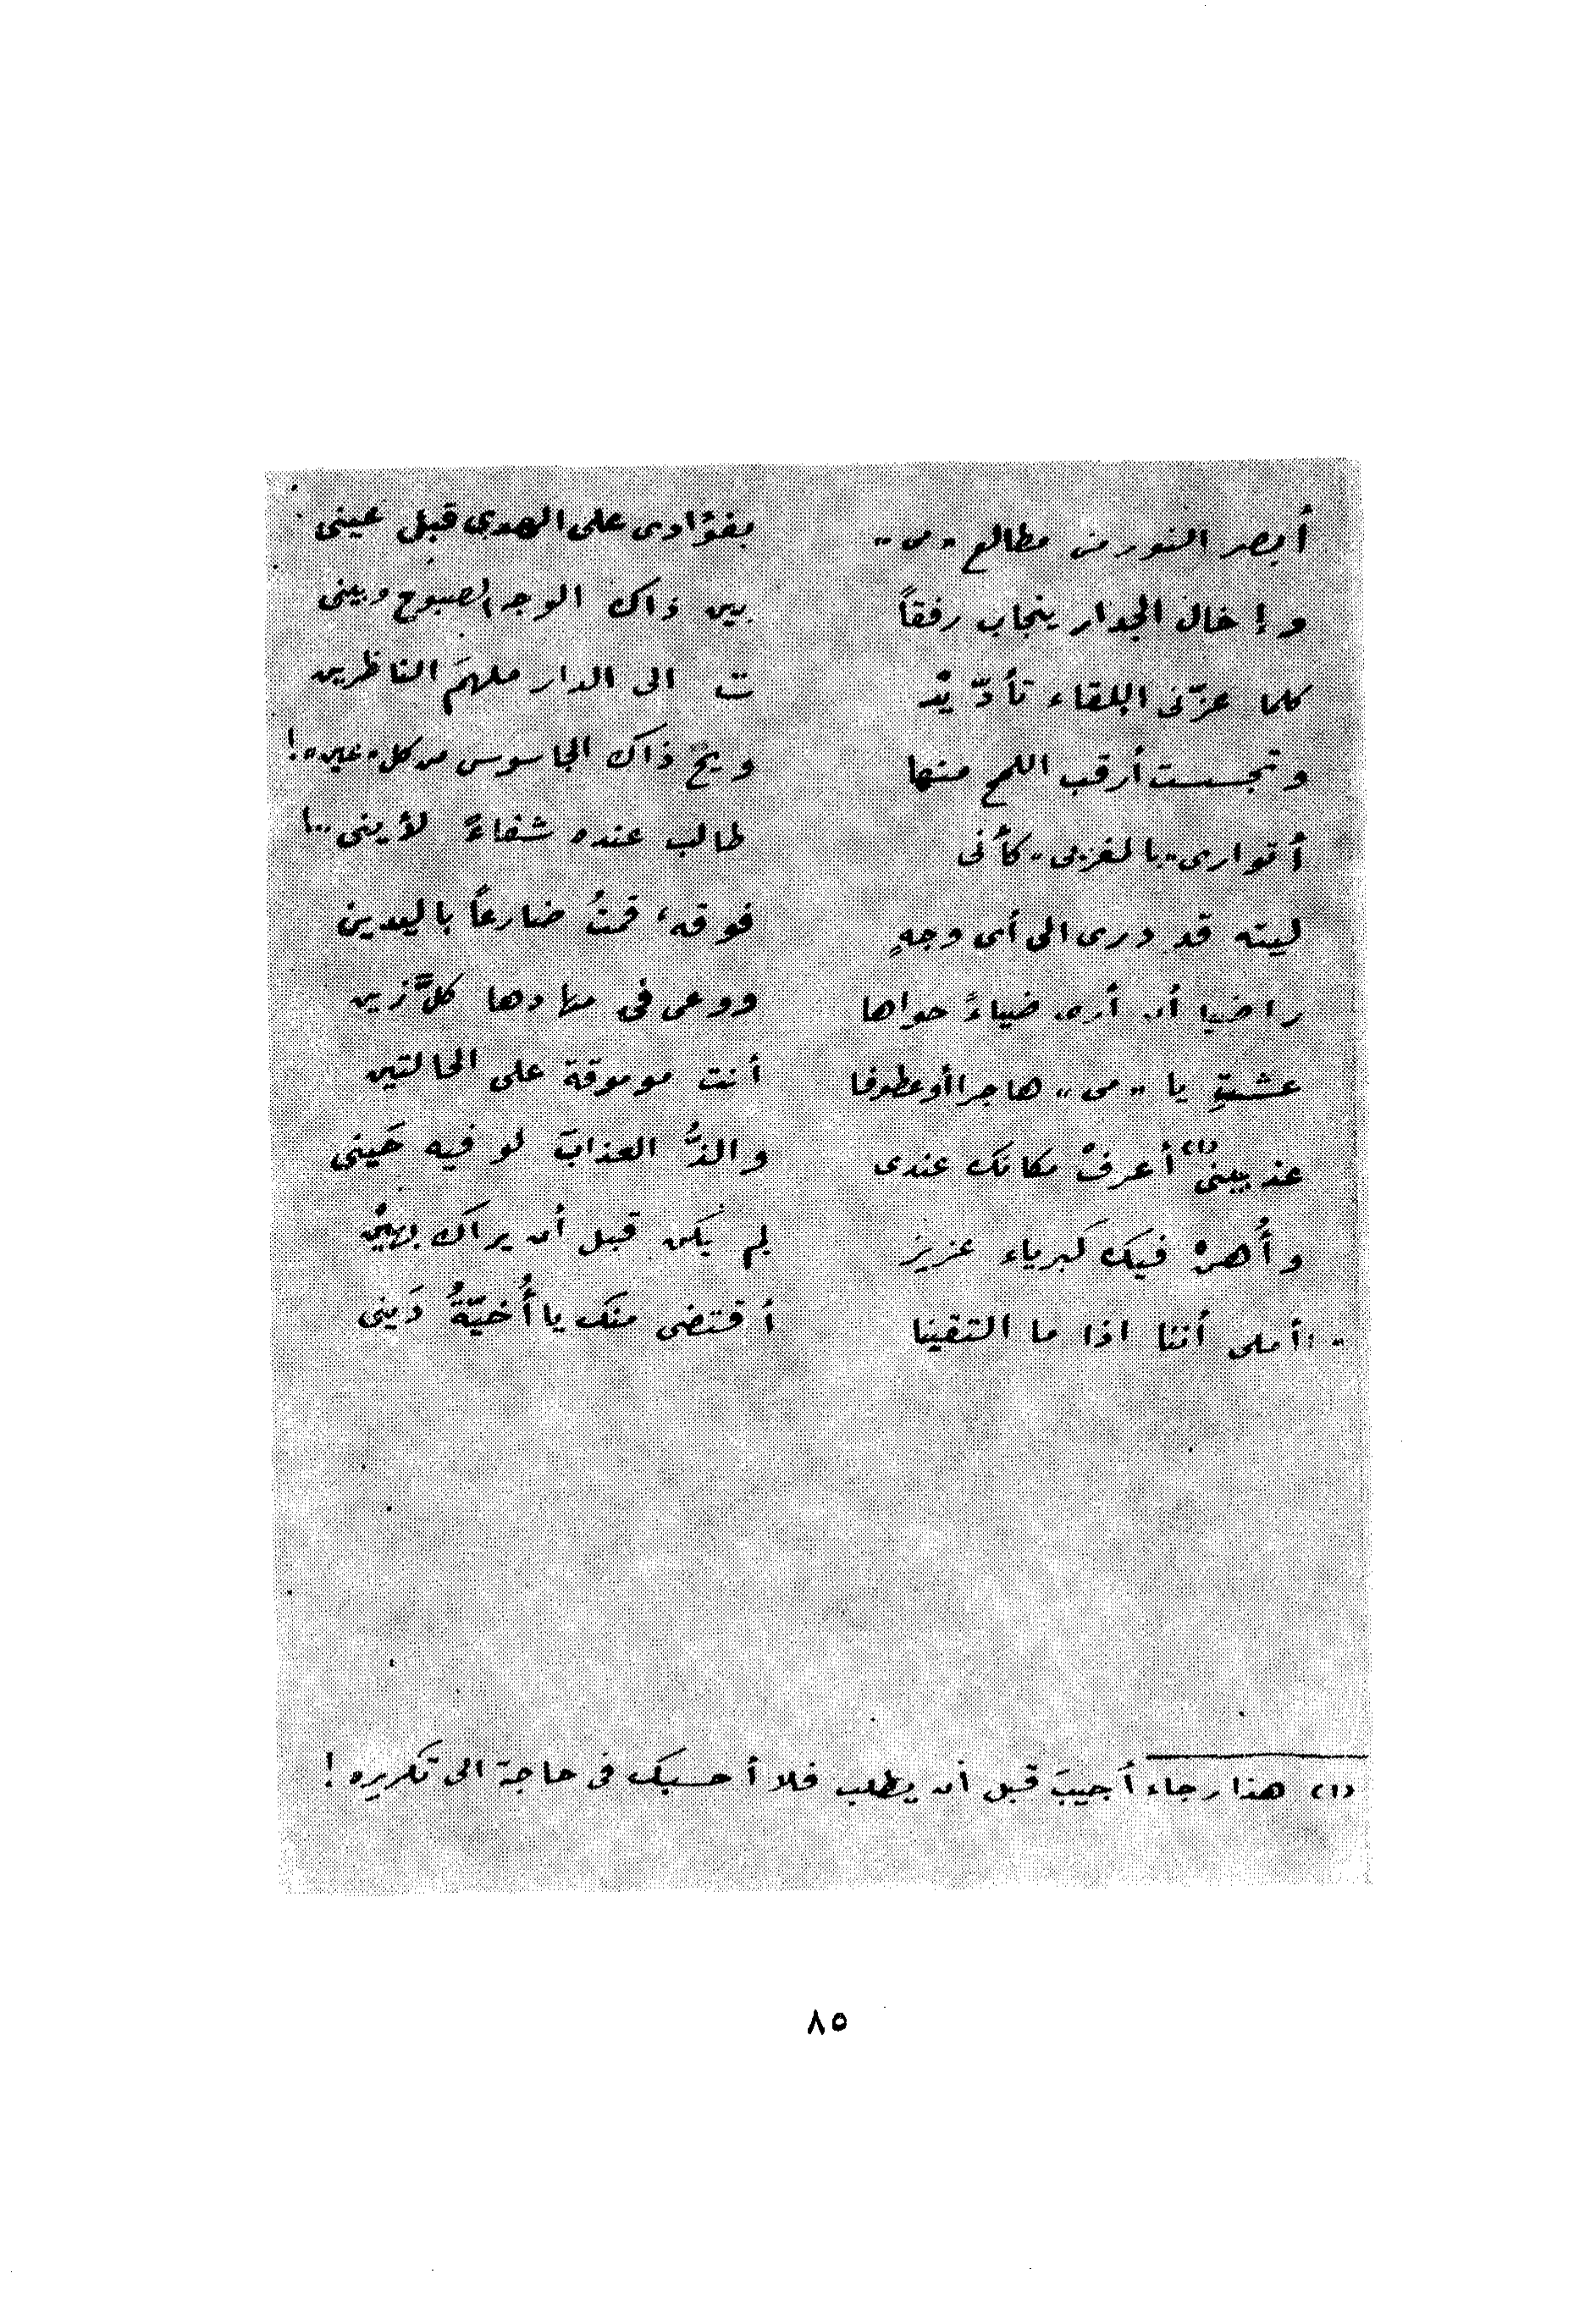 أبصر النور من مطالع "مى" بفؤادى على الهدى قبل عينى
وإخال الجدار ينجاب رفقاً بين ذاك الوجه الصبوح وبينى
كلما عزّنى اللقاء تأدّيْـ ـت الى الدار ملهمَ الناظرين
وتجسست أرقب اللمح منها ويح ذاك الجاسوس من كل "عين"!
أتوارى "بالمغربى" كأنى طالب عنده شفاءً لأينى..!
ليته قد درى الى أى وجهٍ فوقه، قمتُ ضارعاً باليدين
راضيا أن أرى ضياءً حواها ووعى فى مهادها كلَّ زين
عشتِ يا "مى" هاجرا أو عطوفا أنت موموقة على الحالتين
عذبينى (١) أعرفْ مكانك عندى والذُّ العذابَ لو فيه حَينى
وأُهنْ فيك كبرياء عزيز لم يكن قبل أن يراك بهيْن
أملى أننا اذا ما التقينا أقتضى منك يا أُخيّةُ دَينى
(١) هذا رجاء أجيبَ قبل أن يطلب فلا أحسبك فى حاجة الى تكريره!
٨٥